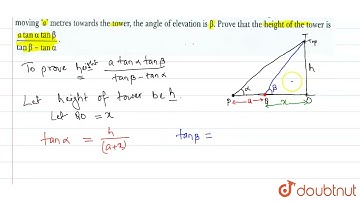 moving 'a' metres towards the tower, the angle of elevation is β. Prove that the height of the tower is
a tan α tan β
tan β - tan α
To prove height a tanα tanβ
= tanβ - tanα
Let height of tower be h.
Let QO = x
tanα = h
(a+x)
tanβ =
T
Top
h
α
β
P
a
Q
x
O
doubtnut